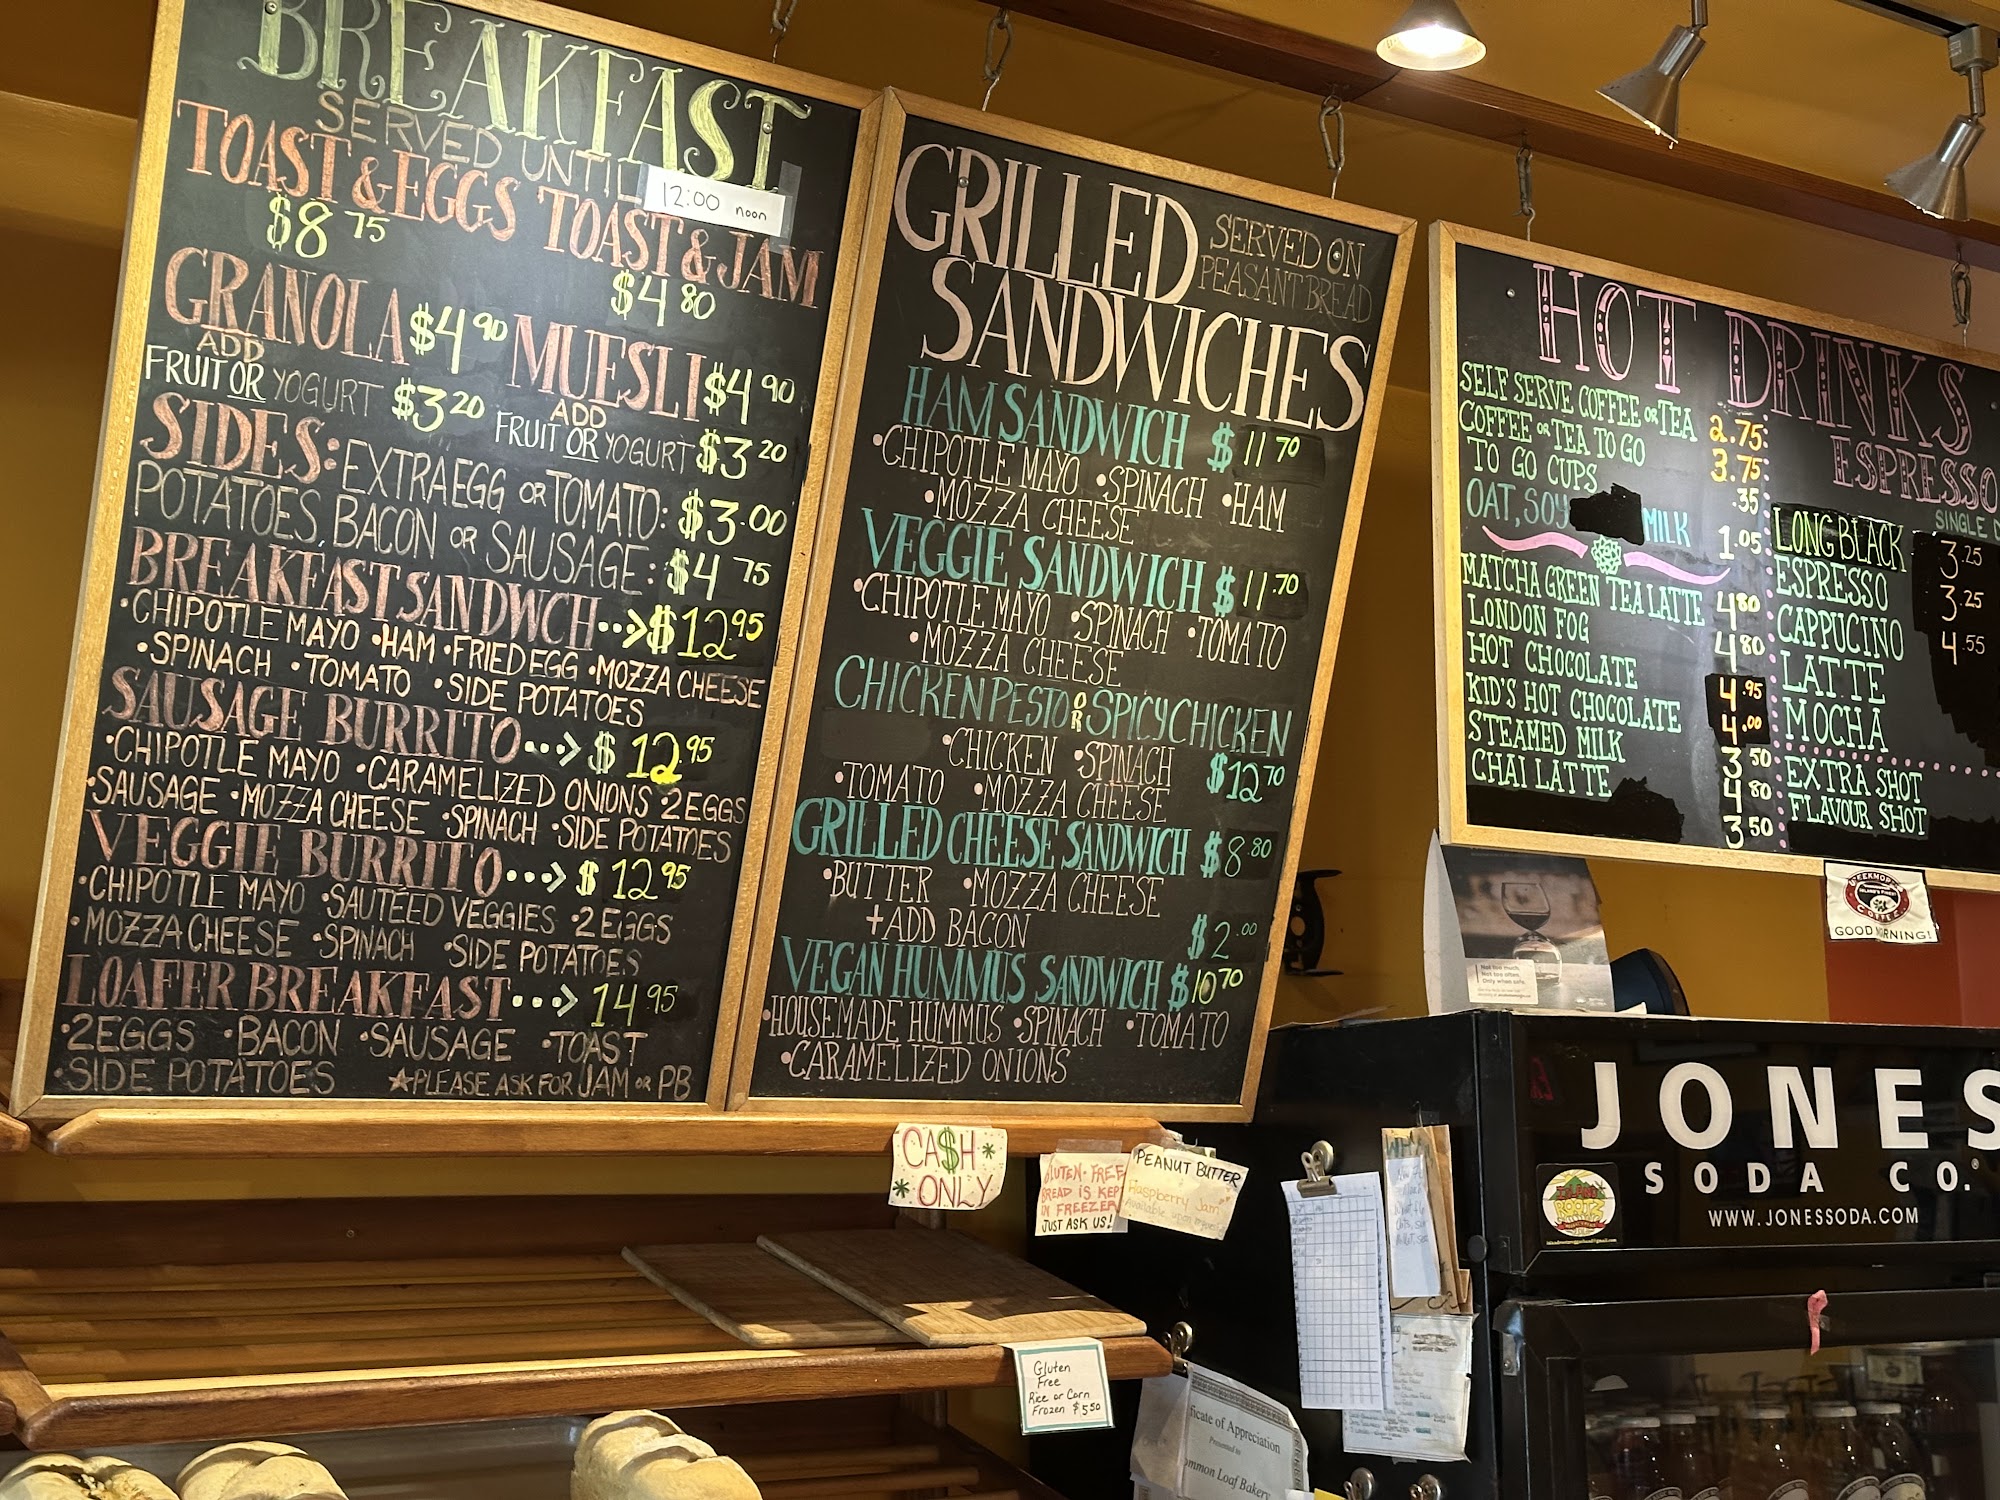 BREAKFAST
SERVED UNTIL 12:00 noon
TOAST & EGGS
$8 75
TOAST & JAM
$4 80
GRANOLA $4 90
ADD
FRUIT OR YOGURT $3 20
MUESLI $4 90
ADD
FRUIT OR YOGURT $3 20
SIDES: EXTRA EGG OR TOMATO: $3.00
POTATOES, BACON OR SAUSAGE: $4 75
BREAKFAST SANDWCH --> $12 95
•CHIPOTLE MAYO •HAM •FRIED EGG •MOZZA CHEESE
•SPINACH •TOMATO •SIDE POTATOES
SAUSAGE BURRITO ---> $12 95
•CHIPOTLE MAYO •CARAMELIZED ONIONS •2 EGGS
•SAUSAGE •MOZZA CHEESE •SPINACH •SIDE POTATOES
VEGGIE BURRITO ---> $12 95
•CHIPOTLE MAYO •SAUTÉED VEGGIES •2 EGGS
•MOZZA CHEESE •SPINACH •SIDE POTATOES
LOAFER BREAKFAST ---> 14 95
•2 EGGS •BACON •SAUSAGE •TOAST
•SIDE POTATOES ★PLEASE ASK FOR JAM OR PB
GRILLED
SANDWICHES
SERVED ON
PEASANT BREAD
HAM SANDWICH $11 70
•CHIPOTLE MAYO •SPINACH •HAM
•MOZZA CHEESE
VEGGIE SANDWICH $11.70
•CHIPOTLE MAYO •SPINACH •TOMATO
•MOZZA CHEESE
CHICKEN PESTO OR SPICY CHICKEN
•CHICKEN •SPINACH $12 70
•TOMATO •MOZZA CHEESE
GRILLED CHEESE SANDWICH $8.80
•BUTTER •MOZZA CHEESE
+ADD BACON $2.00
VEGAN HUMMUS SANDWICH $10 70
•HOUSEMADE HUMMUS •SPINACH •TOMATO
•CARAMELIZED ONIONS
HOT DRINKS
SELF SERVE COFFEE OR TEA 2.75
COFFEE OR TEA TO GO 3.75
TO GO CUPS .35
OAT, SOY MILK 1.05
MATCHA GREEN TEA LATTE 4 80
LONDON FOG 4 80
HOT CHOCOLATE 4.95
KID'S HOT CHOCOLATE 4.00
STEAMED MILK 3 50
CHAI LATTE 4 80
3 50
ESPRESSO
SINGLE
LONG BLACK 3.25
ESPRESSO 3.25
CAPPUCINO 4.55
LATTE
MOCHA
EXTRA SHOT
FLAVOUR SHOT
COFFEE
GOOD MORNING!
Not too much.
Not too often.
Only when safe.
JONES
SODA CO.
WWW.JONESSODA.COM
ROOTZ
CA$H
ONLY
GLUTEN-FREE
BREAD IS KEPT
IN FREEZER
JUST ASK US!
PEANUT BUTTER
Raspberry Jam
Gluten
Free
Rice or Corn
Frozen $5.50
ficate of Appreciation
Presented to
ommon Loaf Bakery